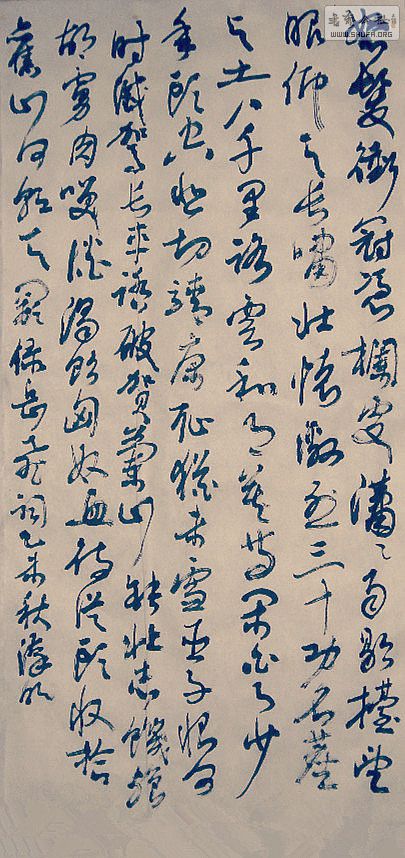 怒髮衝冠憑欄處瀟々雨歇擡望
眼仰天長嘯壯懷激烈三十功名塵
與土八千里路雲和月莫等閑白了少
年頭空悲切靖康恥猶未雪臣子恨何
時滅駕长車踏破賀蘭山缺壯志饑餐
胡虜肉笑談渴飲匈奴血待從頭收拾
舊山河朝天闕錄岳飛詞乙未秋